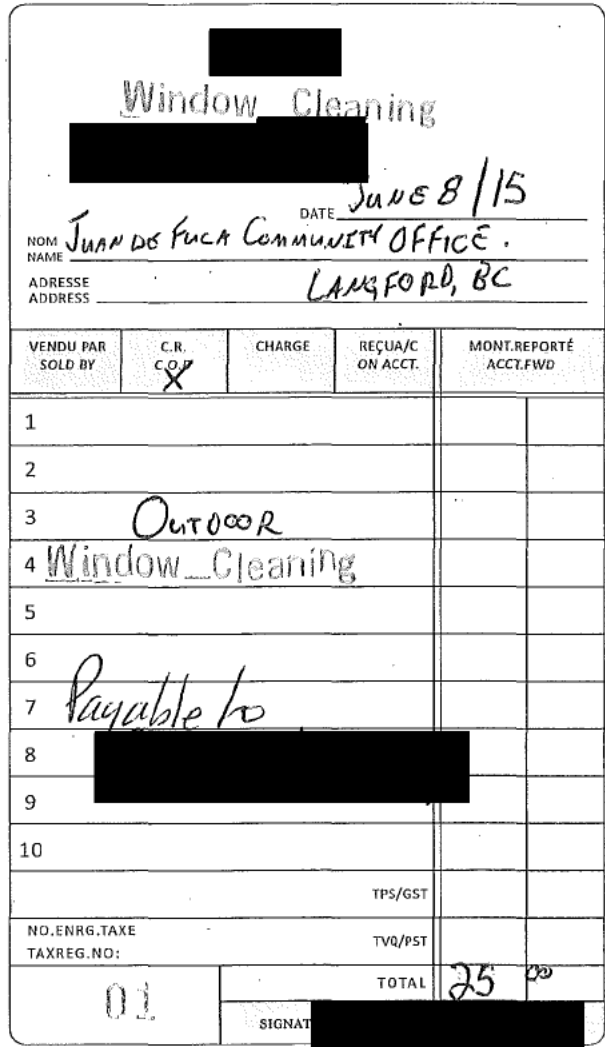 Window Cleaning
DATE JUNE 8/15
NOM
NAME JUAN DE FUCA COMMUNITY OFFICE.
ADRESSE
ADDRESS LANGFORD, BC
VENDU PAR C.R. CHARGE REÇUA/C MONT.REPORTÉ
SOLD BY C.O.D X ON ACCT. ACCT.FWD
1
2
3 OUTDOOR
4 Window Cleaning
5
6
7 Payable to
8
9
10
TPS/GST
NO.ENRG.TAXE
TAXREG.NO:
TVQ/PST
TOTAL 25 00
01
SIGNAT